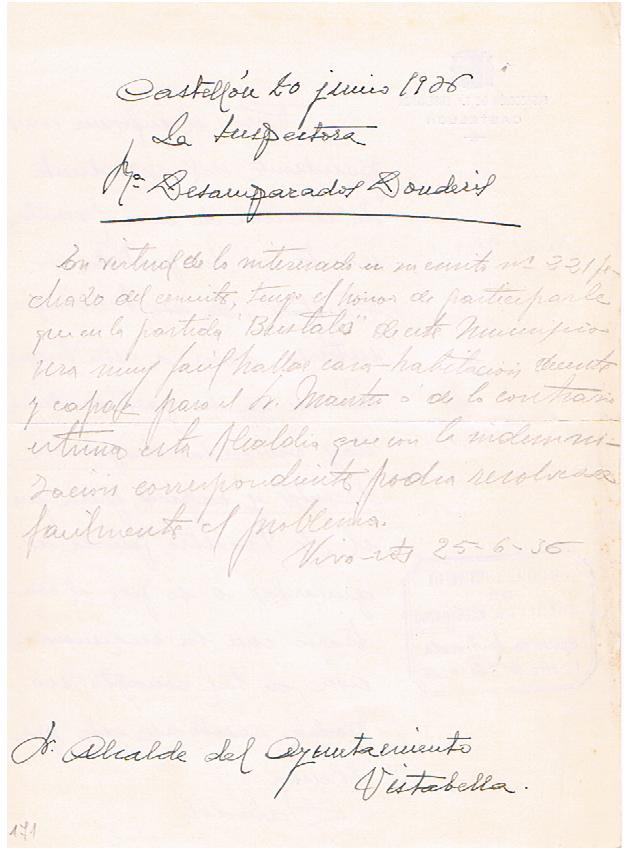 Castellón 20 junio 1936
La Inspectora
Mª Desamparados Donderis
En virtud de lo interesado en su escrito nº 221 fe-
cha 20 del crrente, tengo el honor de participarle
que en la partida "Bustals" de este Municipio
sera muy facil hallar casa-habitacion decente
y capaz para el Sr. Maestro ó de lo contrario
estima esta Alcaldia que con la indemni-
zacion correspondiente podria resolverse
facilmente el problema.
25-6-36
Sr. Alcalde del Ayuntamiento
Vistabella.
171